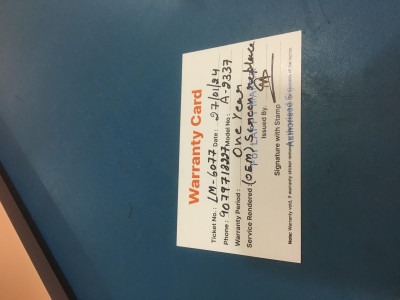 Warranty Card
Ticket No.: LM-6077 Date: 27/01/24
Phone: 9079718227 Model No.: A-2337
Warranty Period: One Year
Service Rendered: (OEM) Screen replace
Issued By
Signature with Stamp
Note: Warranty void, if warranty sticker removed